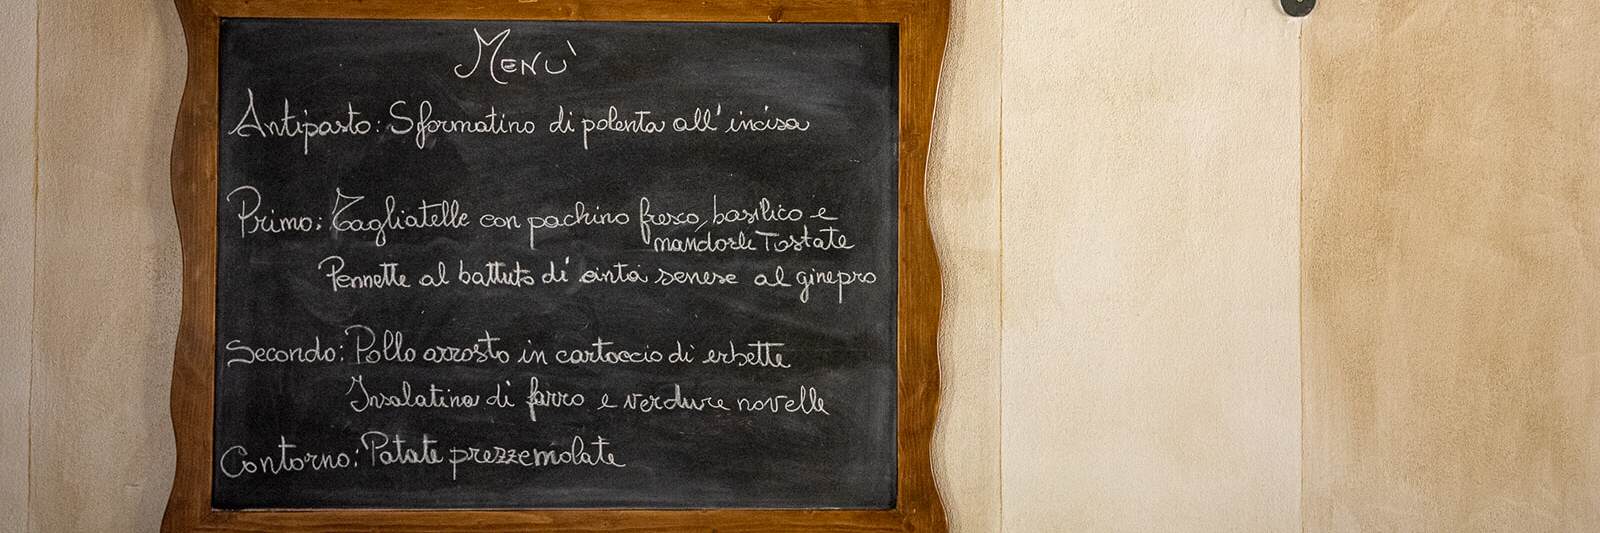 Menù
Antipasto: Sformatino di polenta all'incisa
Primo: Tagliatelle con pachino fresco, basilico e
mandorle Tostate
Pennette al battuto di cinta senese al ginepro
Secondo: Pollo arrosto in cartoccio di erbette
Insalatina di farro e verdure novelle
Contorno: Patate prezzemolate